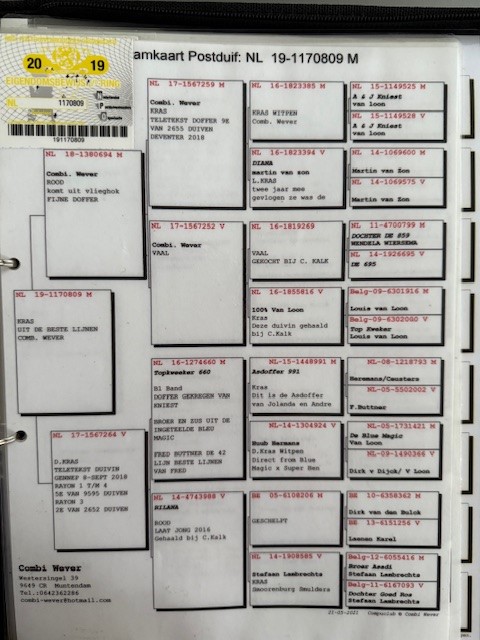 amkaart Postduif: NL 19-1170809 M
20 19
EIGENDOMSBEWIJS RING
NL 1170809
191170809
NL 18-1380694 M
Combi. Wever
ROOD
komt uit vlieghok
FIJNE DOFFER
NL 19-1170809 M
KRAS
UIT DE BESTE LIJNEN
COMB. WEVER
NL 17-1567264 V
D.KRAS
TELETEKST DUIVIN
GENNEP 8-SEPT 2018
RAYON 1 T/M 4
5E VAN 9595 DUIVEN
RAYON 3
2E VAN 2652 DUIVEN
NL 17-1567259 M
Combi. Wever
KRAS
TELETEKST DOFFER 9E
VAN 2655 DUIVEN
DEVENTER 2018
NL 17-1567252 V
Combi. Wever
VAAL
NL 16-1274660 M
Topkweeker 660
Bl Band
DOFFER GEKREGEN VAN
KNIEST
BROER EN ZUS UIT DE
INGETEELDE BLEU
MAGIC
FRED BUTTNER DE 42
LIJN BESTE LIJNEN
VAN FRED
NL 14-4743988 V
RILANA
ROOD
LAAT JONG 2016
Gehaald bij C.Kalk
NL 16-1823385 M
KRAS WITPEN
Comb. Wever
NL 16-1823394 V
DIANA
martin van zon
L.KRAS
twee jaar mee
gevlogen ze was de
NL 16-1819269
VAAL
GEKOCHT BIJ C. KALK
NL 16-1855816 V
100% Van Loon
Kras
Deze duivin gehaald
bij C.Kalk
NL-15-1448991 M
Asdoffer 991
Kras
Dit is de Asdoffer
van Jolanda en Andre
NL 14-1304924 V
Huub Hermans
D.Kras Witpen
Direct from Blue
Magic x Super Hen
BE 05-6108206 M
GESCHELFT
NL 14-1908585 V
Stefaan Lambrechts
KRAS
Smoorenburg Smulders
NL 15-1149525 M
A & J Kniest
van loon
NL 15-1149528 V
A & J Kniest
van loon
NL 14-1069600 M
Martin van Zon
NL 14-1069575 V
Martin van Zon
NL 11-4700799 M
DOCHTER DE 859
WENDELA WIERSEMA
NL 14-1926695 V
DE 695
Belg-09-6301916 M
Louis van Loon
Belg-09-6302000 V
Top Kweker
Louis van Loon
NL-08-1218793 M
Heremans/Ceusters
NL-05-5502002 V
F.Buttner
NL-05-1731421 M
De Blue Magic
Van Loon
NL-09-1490366 V
Dirk v Dijck/ V Loon
BE 10-6358362 M
Dirk van den Bulck
BE 13-6151256 V
Laenen Karel
Belg-12-6055416 M
Broer Asadi
Stefaan Lambrechts
Belg-11-6167093 V
Dochter Goed Nos
Stefaan Lambrechts
Combi Wever
Westerzingel 39
9649 CR Muntendam
Tel.:0642362286
combi-wever@hotmail.com
21-05-2021 Compuclub © Combi Wever